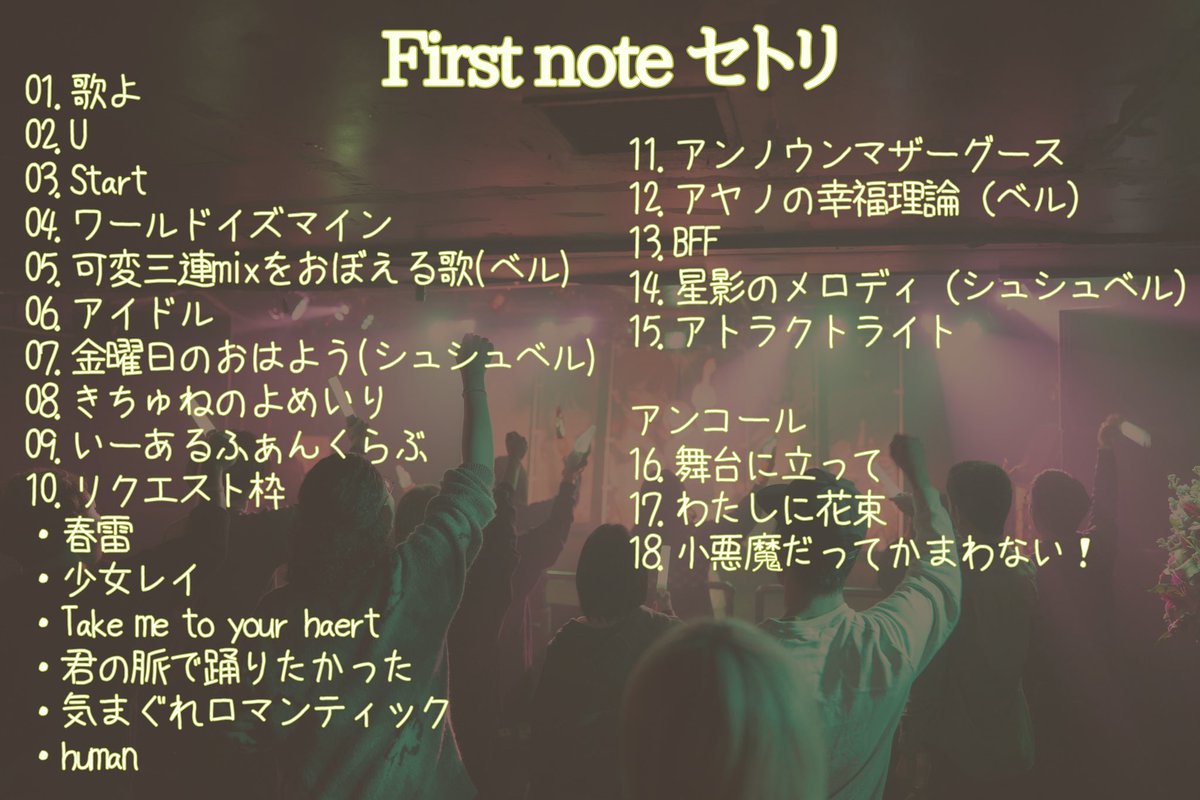 First note セトリ
01. 歌よ
02. U
03. Start
04. ワールドイズマイン
05. 可変三連mixをおぼえる歌(ベル)
06. アイドル
07. 金曜日のおはよう(シュシュベル)
08. きちゅねのよめいり
09. いーあるふぁんくらぶ
10. リクエスト枠
・春雷
・少女レイ
・Take me to your haert
・君の脈で踊りたかった
・気まぐれロマンティック
・human
11. アンノウンマザーグース
12. アヤノの幸福理論（ベル）
13. BFF
14. 星影のメロディ（シュシュベル）
15. アトラクトライト
アンコール
16. 舞台に立って
17. わたしに花束
18. 小悪魔だってかまわない！